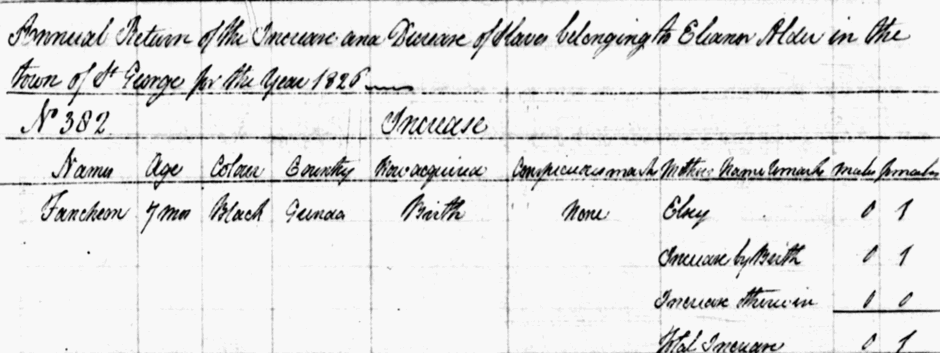 Annual Return of the Increase and Decrease of Slaves belonging to Eleanor Alder in the
town of St George for the Year 1826
No 382 Increase
Names Age Colour Country How acquired Conspicuous marks Mothers Name Remarks males females
Fancheon 7 mos Black Grenada Birth None Elsey 0 1
Increase by Birth 0 1
Increase otherwise 0 0
Total Increase 0 1